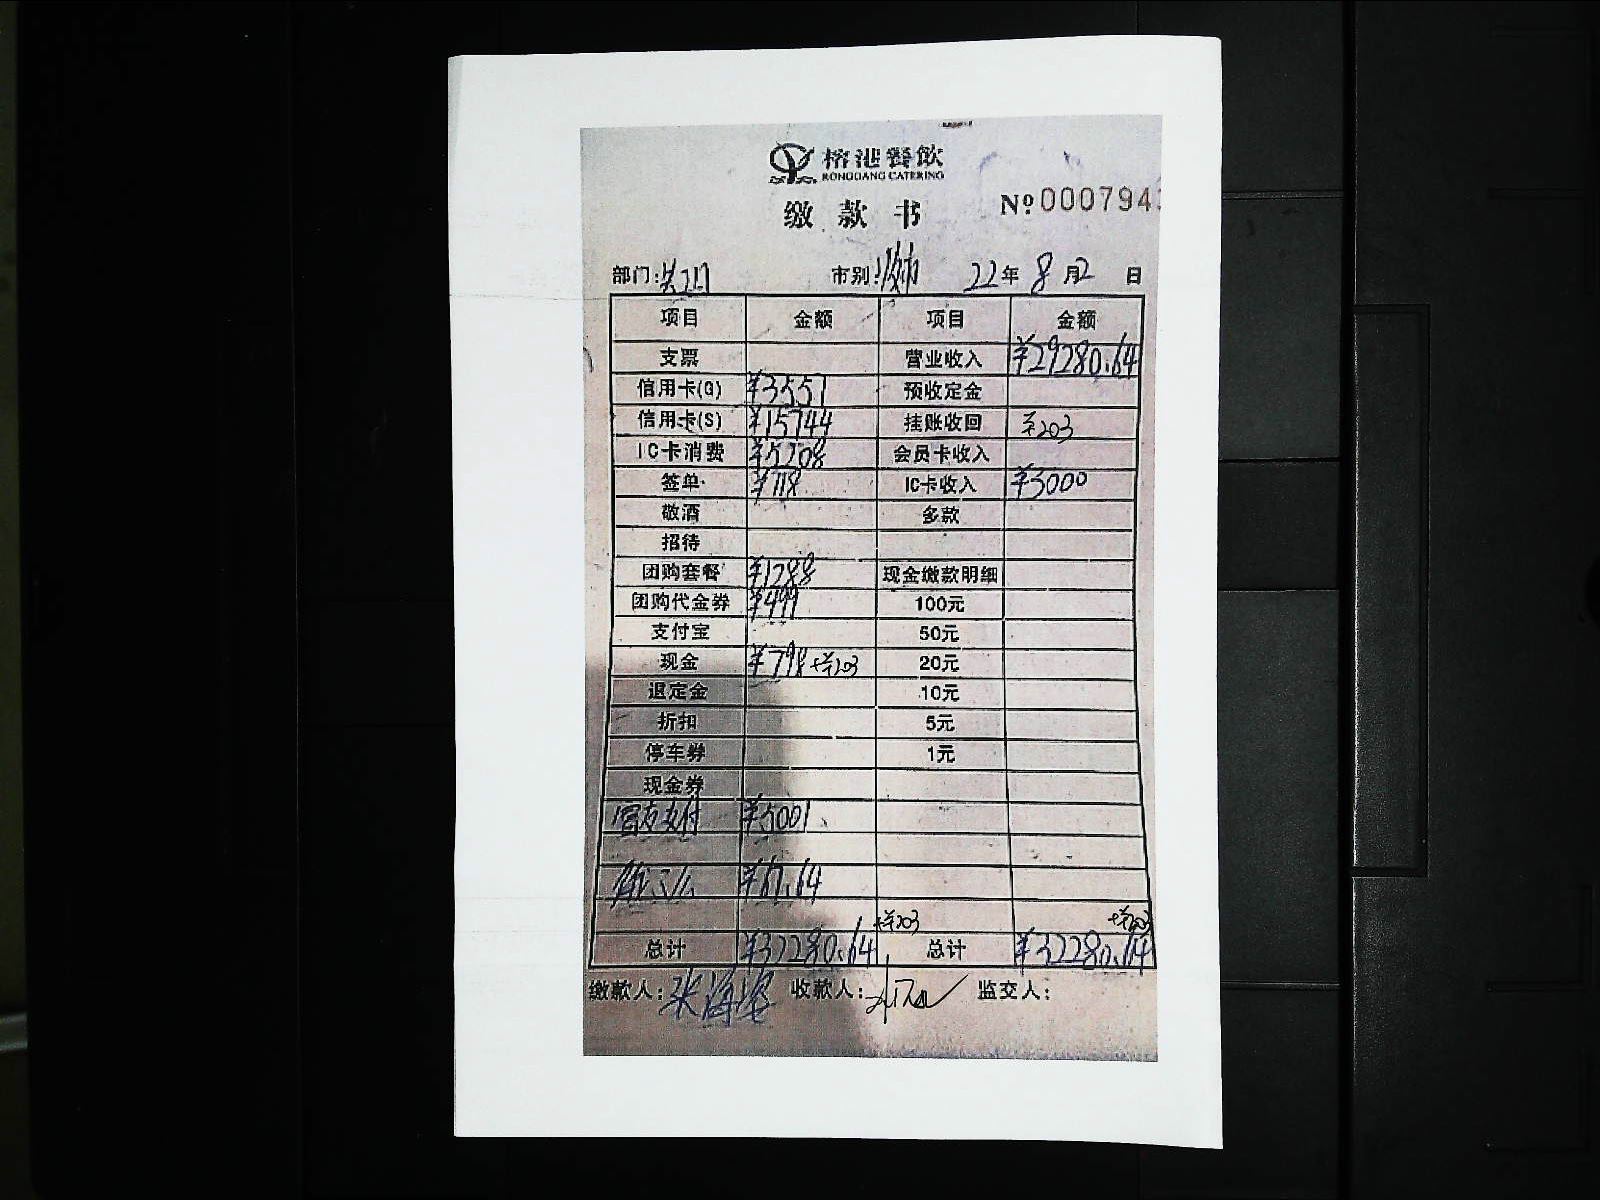 榕港餐饮
RONGGANG CATERING
缴款书
№ 000794
部门: 市别: 22年8月2日
项目 金额 项目 金额
支票 营业收入 ¥29280.64
信用卡(G) ¥3557 预收定金
信用卡(S) ¥15744 挂账收回 ¥203
IC卡消费 ¥5208 会员卡收入
签单 ¥118 IC卡收入 ¥3000
敬酒 多款
招待
团购套餐 ¥1288 现金缴款明细
团购代金券 ¥499 100元
支付宝 50元
现金 ¥798+¥203 20元
退定金 10元
折扣 5元
停车券 1元
现金券
支付 ¥5001
¥67.64
+¥203 +¥203
总计 ¥32280.64 总计 ¥32280.64
缴款人:张海 收款人: 监交人: